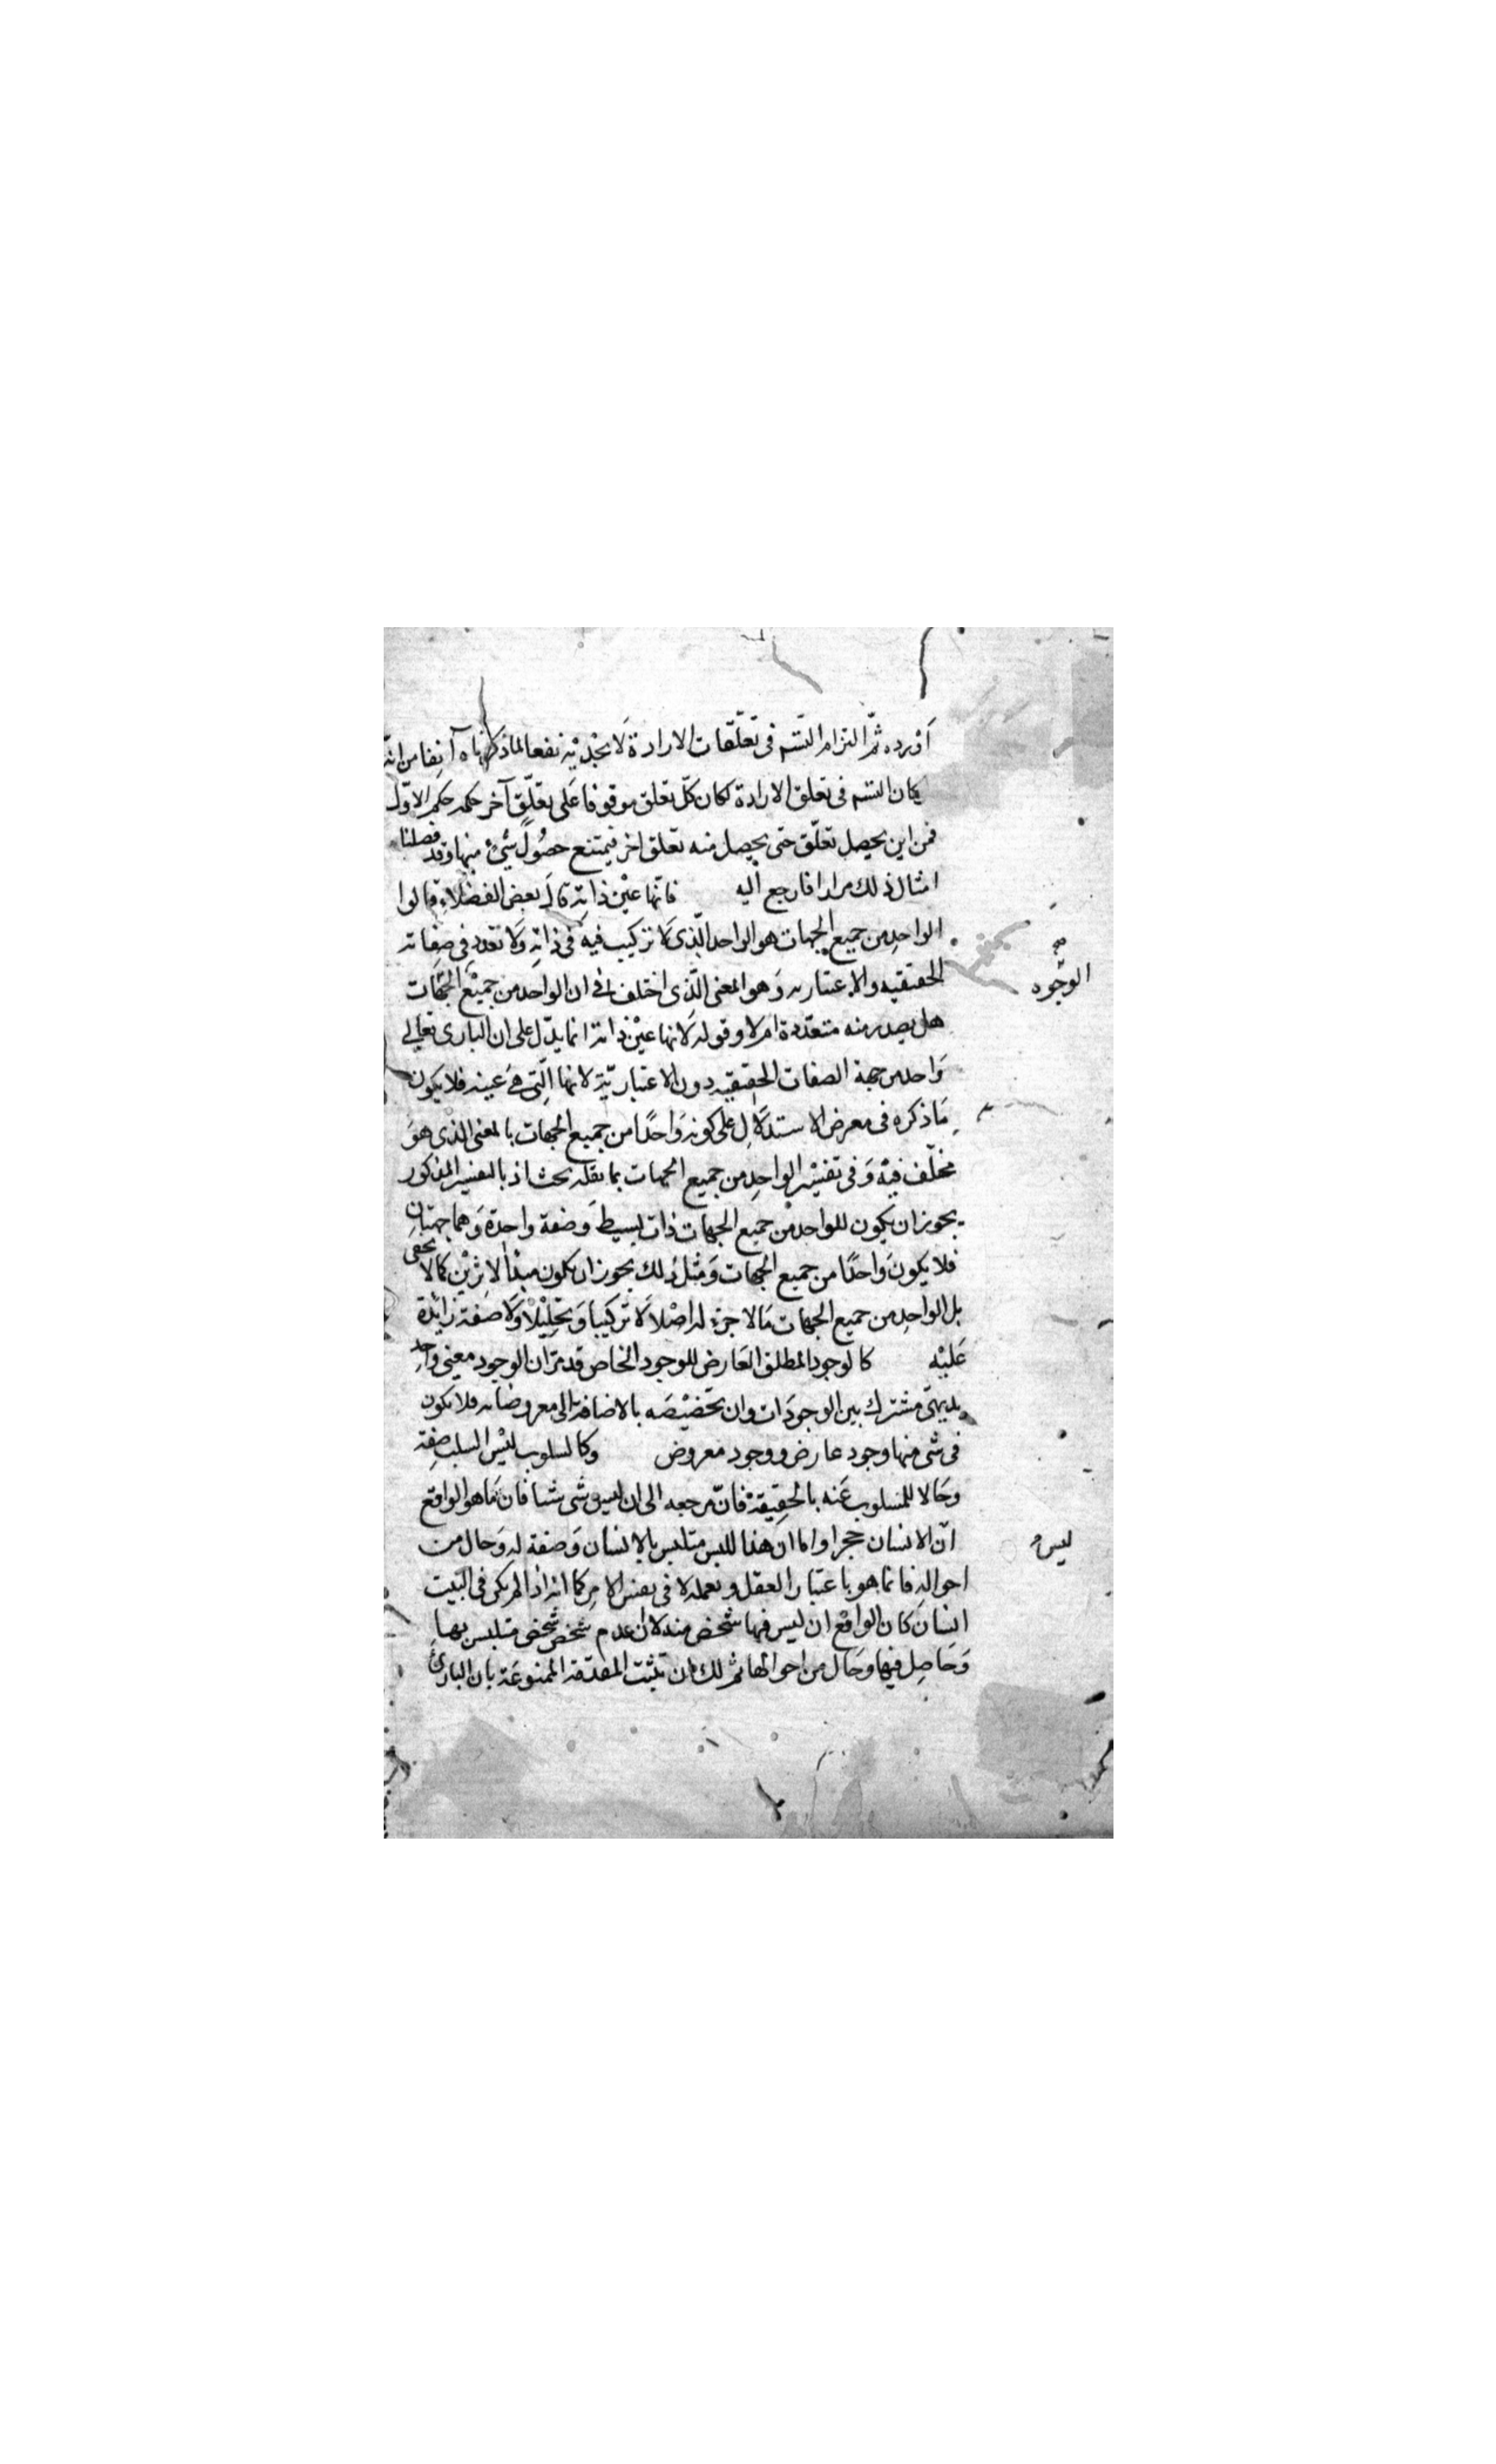 اورده ثمّ التزام التسم فى تعلّقات الارادة لا يجديه نفعا لما ذكرناه آنفا من انه
كان التسم فى تعلق الارادة لكان كلّ تعلق موقوفا على تعلّق آخر حكمه حكم الاوّل
فمن اين يحصل تعلّق حتى يحصل منه تعلق اخر فيمتنع حصول شئ منها وقد فصلنا
امثال ذلك مرارا فارجع اليه فانها عين ذاته قال بعض الفضلاء قالوا
الواحد من جميع الجهات هو الواحد الّذى لا تركيب فيه فى ذاته ولا تعدد فى صفاته
الوجوه
الحقيقيه والاعتباريه وهو المعنى الّذى اختلف فى ان الواحد من جميع الجهات
هل يصدر منه متعدّدة ام لا وقوله لانها عين ذاته انما يدّل على ان البارى تعالى
واحد من جهة الصفات الحقيقيه دون الاعتباريّة لانها الّتى هى عينه فلا يكون
ما ذكره فى معرض الاستدلال على كونه واحدًا من جميع الجهات بالمعنى الذى هو
مختلف فيه وفى تفسير الواحد من جميع الجهات بما نقله بحث اذ بالتفسير المذكور
يجوز ان يكون للواحد من جميع الجهات ذات بسيط وصفة واحدة وهما جهتان
فلا يكون واحدًا من جميع الجهات ومثل ذلك يجوز ان يكون مبدأ لاثرين كما لا يخفى
بل الواحد من جميع الجهات ما لا جزء له اصلا لا تركيبا وتحليلا ولا صفة زائدة
عليه كالوجود المطلق العارض للوجود الخاص قد مرّ ان الوجود معنى واحد
بديهى مشترك بين الوجودات وان تخصيصه بالاضافة الى معروضاته فلا يكون
فى شئ منها وجود عارض ووجود معروض وكالسلوب ليس السلب صفة
وحالا للمسلوب عنه بالحقيقة فانّ مرجعه الى ان ليس شئ شيئا فان ما هو الواقع
ليس
انّ الانسان حجرا واما ان هذا لليس متلبس بالانسان وصفة له وحال من
احواله فانما هو باعتبار العقل وتعمله لا فى نفس الامر كما انه اذا لم يكن فى البيت
انسان كان الواقع ان ليس فيها شخص منه لا ان عدم شخص شخص متلبس بها
وحاصل فيها وحال من احوالها ثم لك ان تثبت المقدّمة الممنوعة بان البارئ